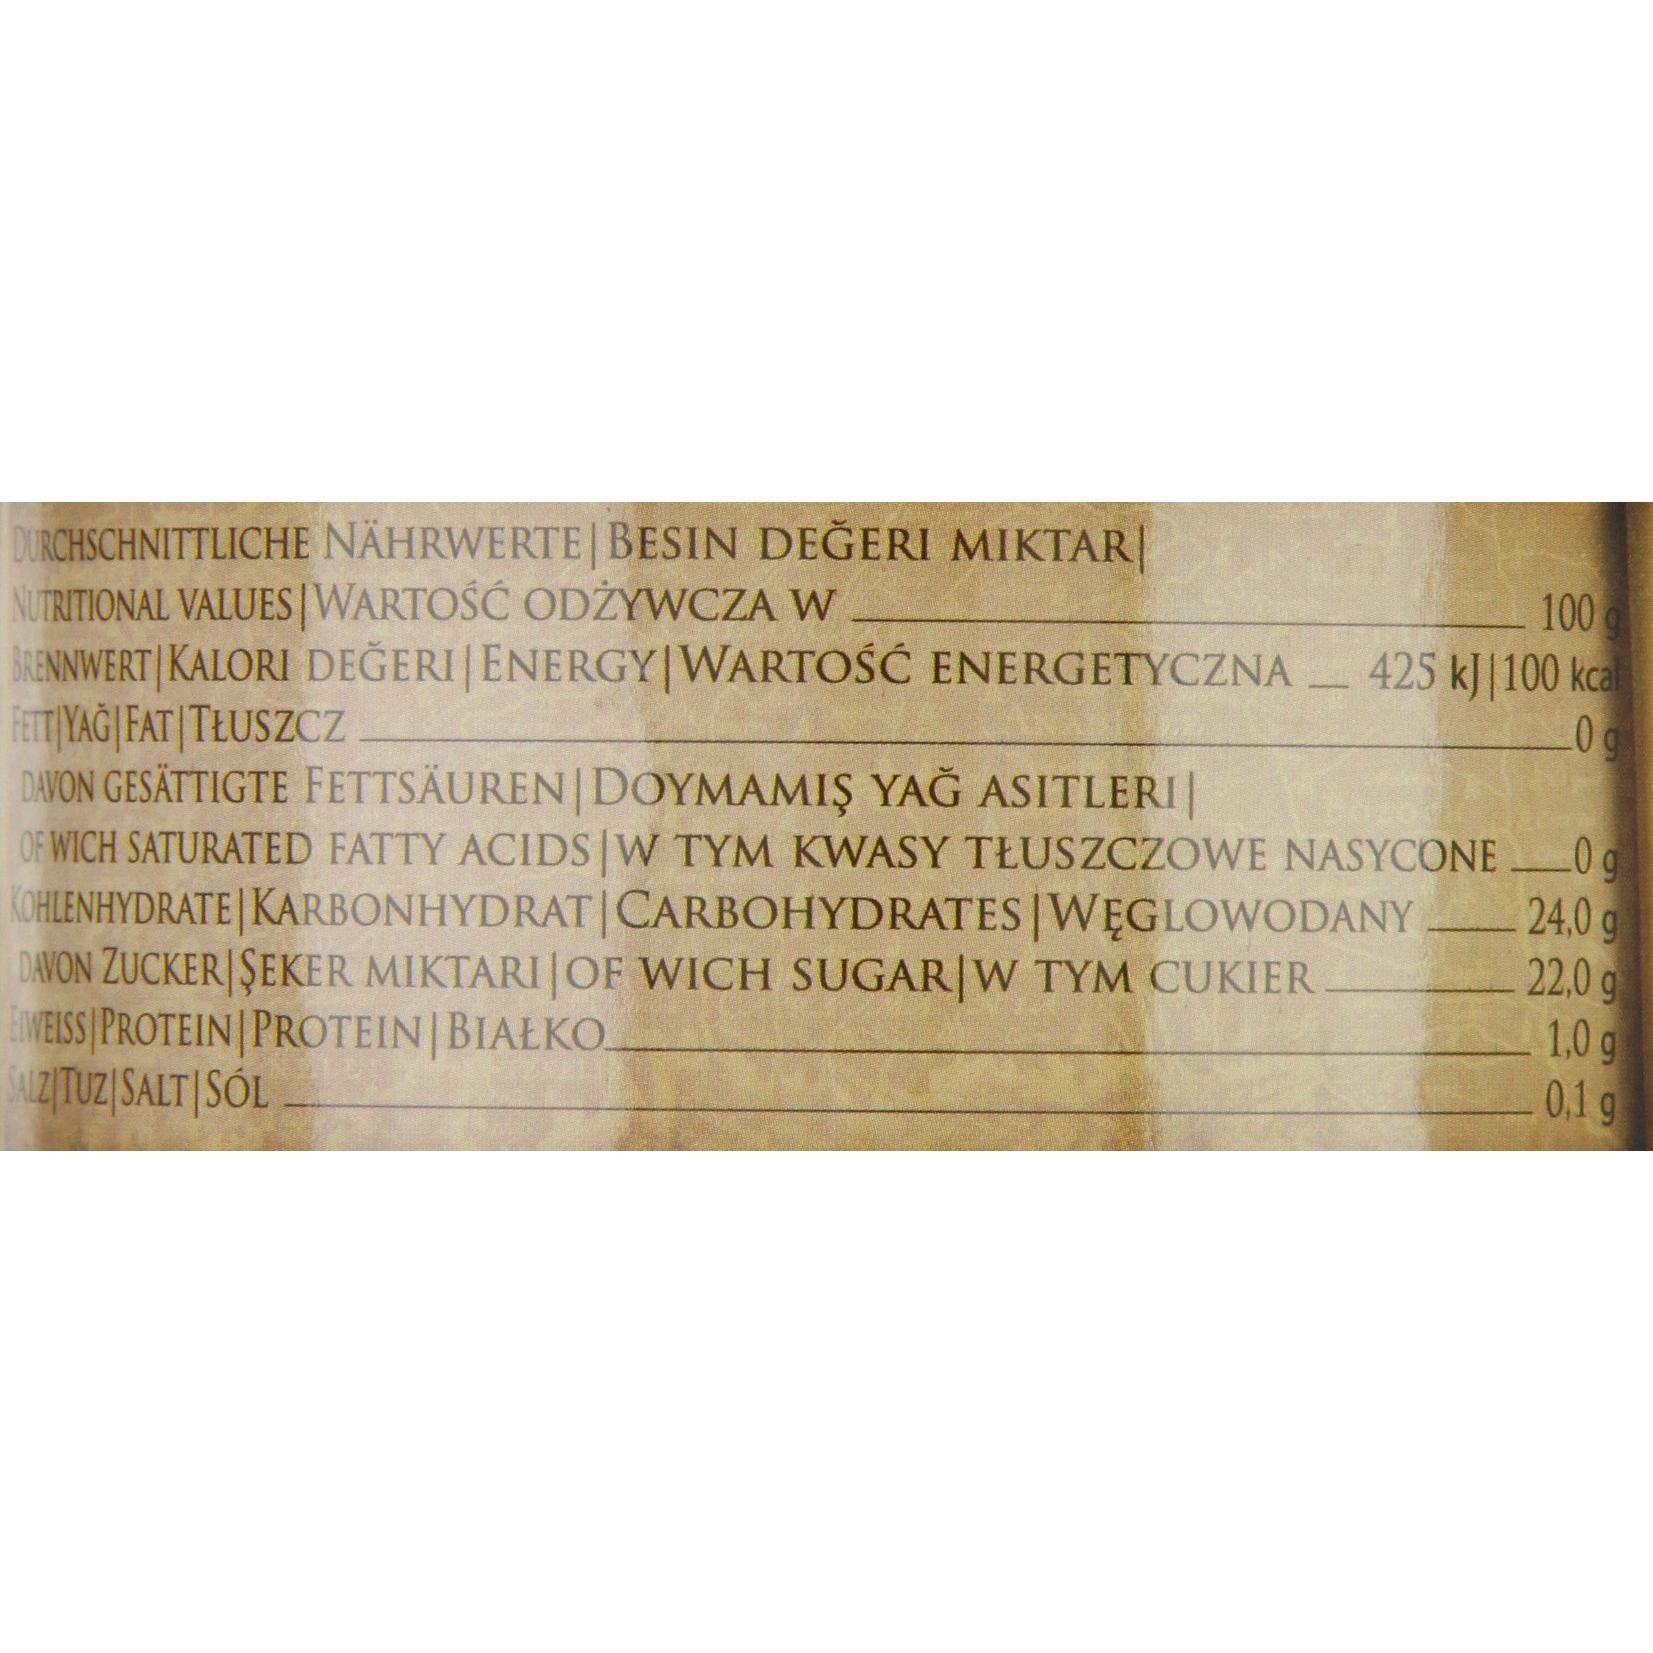 DURCHSCHNITTLICHE NÄHRWERTE|BESIN DEĞERI MIKTAR|
NUTRITIONAL VALUES|WARTOŚĆ ODŻYWCZA W 100 g
BRENNWERT|KALORI DEĞERI|ENERGY|WARTOŚĆ ENERGETYCZNA 425 kJ|100 kcal
FETT|YAĞ|FAT|TŁUSZCZ 0 g
DAVON GESÄTTIGTE FETTSÄUREN|DOYMAMIŞ YAĞ ASITLERI|
OF WICH SATURATED FATTY ACIDS|W TYM KWASY TŁUSZCZOWE NASYCONE 0 g
KOHLENHYDRATE|KARBONHYDRAT|CARBOHYDRATES|WĘGLOWODANY 24,0 g
DAVON ZUCKER|ŞEKER MIKTARI|OF WICH SUGAR|W TYM CUKIER 22,0 g
EIWEISS|PROTEIN|PROTEIN|BIAŁKO 1,0 g
SALZ|TUZ|SALT|SÓL 0,1 g